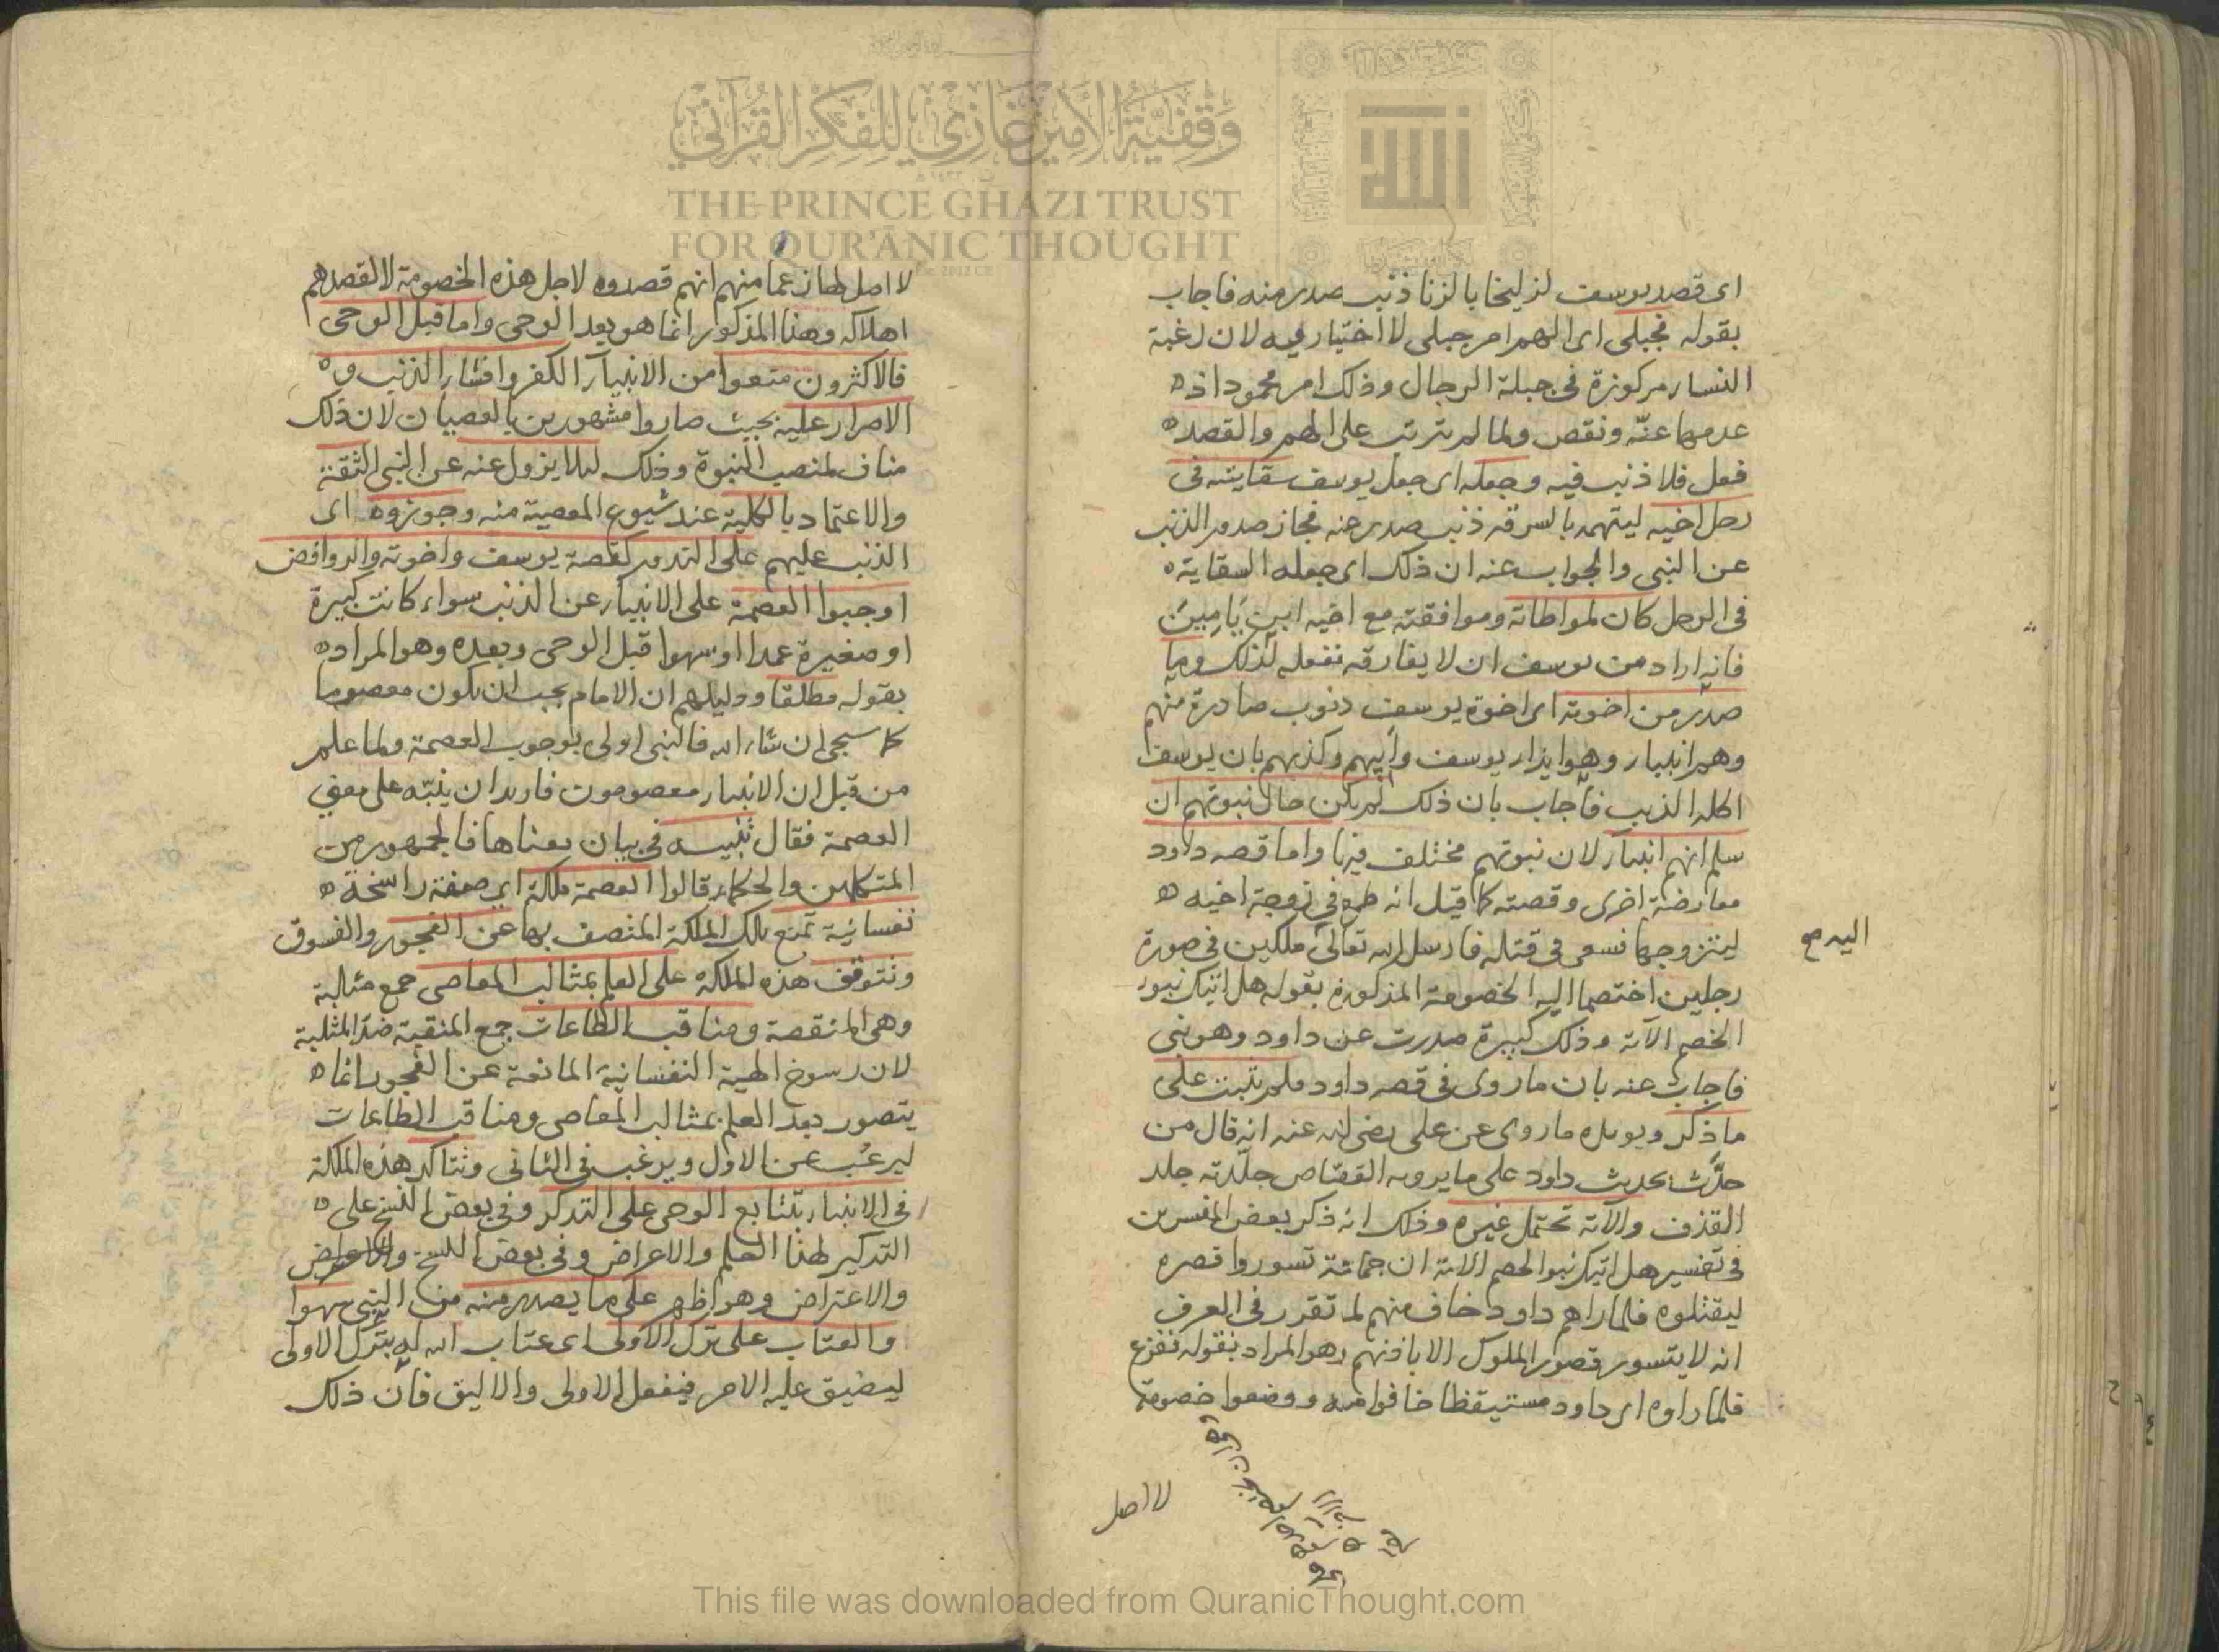 وقفية الأمير غازي للفكر القرآني
THE PRINCE GHAZI TRUST
FOR QUR'ĀNIC THOUGHT
اى قصد يوسف لزليخا بالزنا ذنب صدر منه فاجاب
بقوله فجبلى اى الهم امر جبلى لا اختيار فيه لان رغبة
النساء مركوزة فى جبلة الرجال وذلك امر محمود اذ
عدمها عنّة ونقص ولما لم يترتب على الهم والقصد
فعل فلا ذنب فيه وجعله اى جعل يوسف سقايته فى
رحل اخيه ليتهمه بالسرقه ذنب صدر عنه فجاز صدور الذنب
عن النبى والجواب عنه ان ذلك اى جعله السقاية
فى الرحل كان لمواطاته وموافقته مع اخيه ابن يَامِين
فانه اراد من يوسف ان لا يفارقه ففعله لذلك وما
صدر من اخوته اى اخوة يوسف ذنوب صادرة منهم
وهم انبياء وهو ايذاء يوسف وابيهم وكذبهم بان يوسف
اكله الذيب فاجاب بان ذلك لم يكن حال نبوتهم ان
سلم انهم انبياء لان نبوتهم مختلف فيها واما قصه داود
معارضة اخرى وقصته كما قيل انه طمع فى زوجة اخيه
ليتزوجها فسعى فى قتله فارسل الله تعالى ملكين فى صورة
اليه صح
رجلين اختصما اليه الخصومة المذكورة بقوله هل اتيك نبؤ
الخصم الآية وذلك كبيرة صدرت عن داود وهو نبى
فاجاب عنه بان ما روى فى قصه داود فلم يثبت على
ما ذكر ويويده ما روى عن على رضى الله عنه انه قال من
حدّث بحديث داود على ما يرويه القصّاص جلّدته جلد
القذف والآية تحتمل غيره وذلك انه ذكر بعض المفسرين
فى تفسير هل اتيك نبوا الخصم الاية ان جماعة تسوروا قصره
ليقتلوه فلما راهم داود خاف منهم لما تقرر فى العرف
انه لا يتسور قصور الملوك الا باذنهم وهو المراد بقوله ففزع
فلما راوه اى داود مستيقظا خافوا منه ووضعوا خصومة
لا اصل
لا اصل لها زعما منهم انهم قصدوه لاجل هذه الخصومة لا لقصدهم
اهلاكه وهذا المذكور انما هو بعد الوحى واما قبل الوحى
فالاكثرون منعوا من الانبيآء الكفر وافشاء الذنب و
الاصرار عليه بحيث صاروا مشهورين بالعصيان لان ذلك
مناف لمنصب النبوة وذلك ليلا يزول عنه عن النبى الثقة
والاعتماد بالكلية عند شيوع المعصية منه وجوزوه اى
الذنب عليهم على الندور كقصة يوسف واخوته والروافض
اوجبوا العصمة على الانبياء عن الذنب سواء كانت كبيرة
او صغيرة عمدا او سهوا قبل الوحى وبعده وهو المراد
بقوله مطلقا ودليلهم ان الامام يجب ان يكون معصوما
كما سيجى ان شاء الله فالنبى اولى بوجوب العصمة ولما علم
من قبل ان الانبياء معصومون فاريد ان ينبّه على معنى
العصمة فقال تنبيه فى بيان معناها فالجمهور من
المتكلمين والحكماء قالوا العصمة ملكة اى صفة راسخة
نفسانية تمنع تلك الملكة المتصف بها عن الفجور والفسوق
وتتوقف هذه الملكة على العلم بمثالب المعاصى جمع مثالبة
وهى المنقصة ومناقب الطاعات جمع المنقبة ضد المثلبة
لان رسوخ الهية النفسانية المانعة عن الفجور انما
يتصور بعد العلم بمثالب المعاصى ومناقب الطاعات
ليرغب عن الاول ويرغب فى الثانى وتتاكد هذه الملكة
فى الانبياء بتتابع الوحى على التذكر وفى بعض النسخ على
التذكير لهذا العلم والاعراض وفى بعض النسخ
والاعتراض وهو اظهر على ما يصدر منه من النبى سهوا
والعتاب على ترك الاولى اى عتاب الله له بترك الاولى
ليضيق عليه الامر فيفعل الاولى والاليق فان ذلك
This file was downloaded from QuranicThought.com